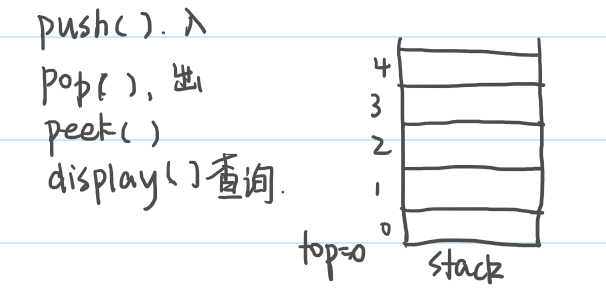 push(). 入
pop(), 出
peek()
display()查询.
4
3
2
1
0
top=0
stack